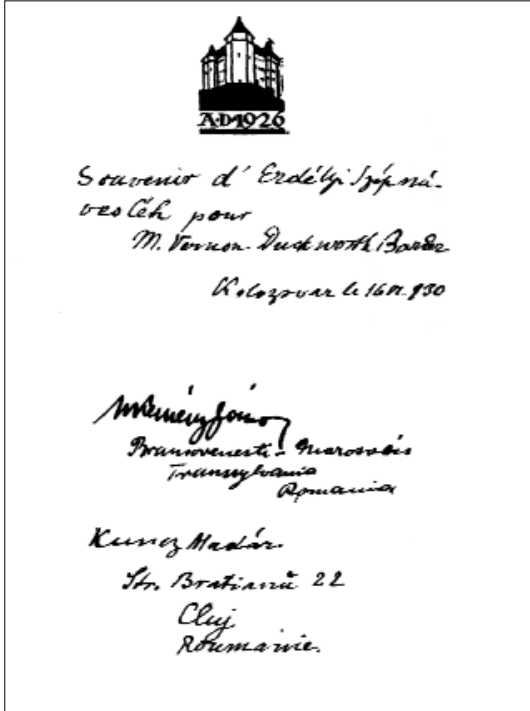 A·D·1926
Souvenir d' Erdélyi Szépmí-
ves Céh pour
M. Vernon Duckworth Barker
Kolozsvar le 16 VI. 930
Kemény János
Brancovenesti - Marosvécs
Transylvania
Romania
Kuncz Aladár.
Str. Bratianu 22
Cluj
Roumanie.